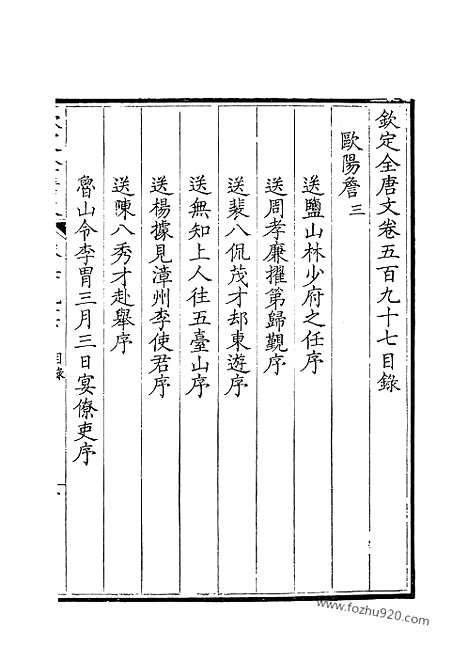 欽定全唐文卷五百九十七目錄
歐陽詹三
送鹽山林少府之任序
送周孝廉擢第歸觀序
送裴八侃茂才却東遊序
送無知上人往五臺山序
送楊據見漳州李使君序
送陳八秀才赴舉序
魯山令李胄三月三日宴僚吏序
目錄
www.fozhu920.com